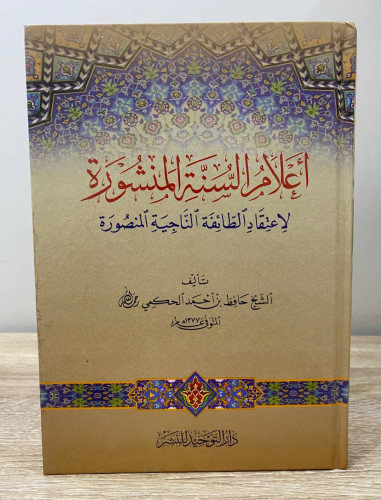 أعلام السنة المنشورة
لاعتقاد الطائفة الناجية المنصورة
تأليف
الشيخ حافظ بن أحمد الحكمي رحمه الله
المتوفى عام ١٣٧٧هـ
دار التوحيد للنشر